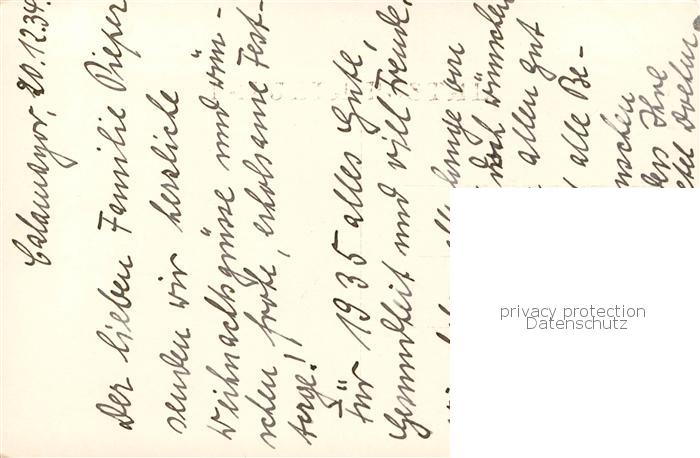 Calamayor, 20.12.34.
Der lieben Familie Pieper
senden wir herzliche
Weihnachtsgrüsse und wün-
schen frohe, erholsame Fest-
tage!
Für 1935 alles Gute,
Gesundheit und viel Freude.
von
noch wünschen
allen gut
alle Be-
Ihre
privacy protection
Datenschutz